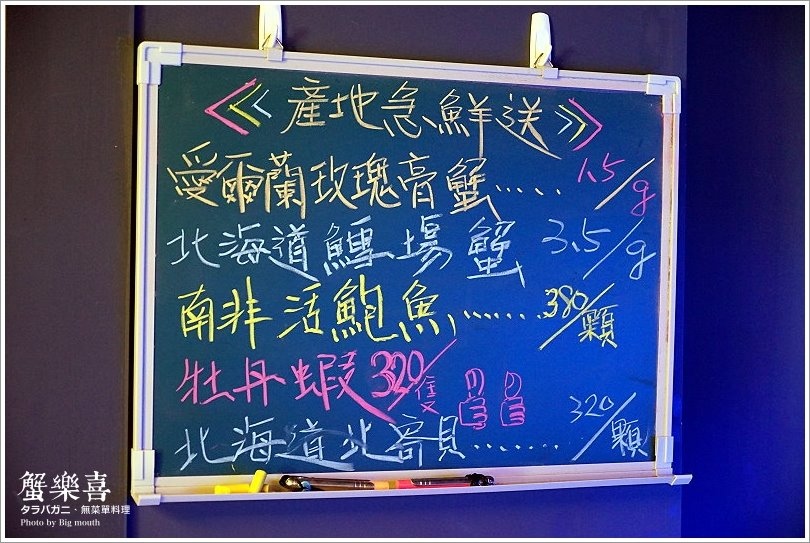 《< 產地急鮮送 >》
愛爾蘭玫瑰膏蟹..... 1.5/g
北海道鱈場蟹 3.5/g
南非活鮑魚....... 380/顆
牡丹蝦 320/隻
北海道北寄貝....... 320/顆
蟹樂喜
タラバガニ、無菜單料理
Photo by Big mouth